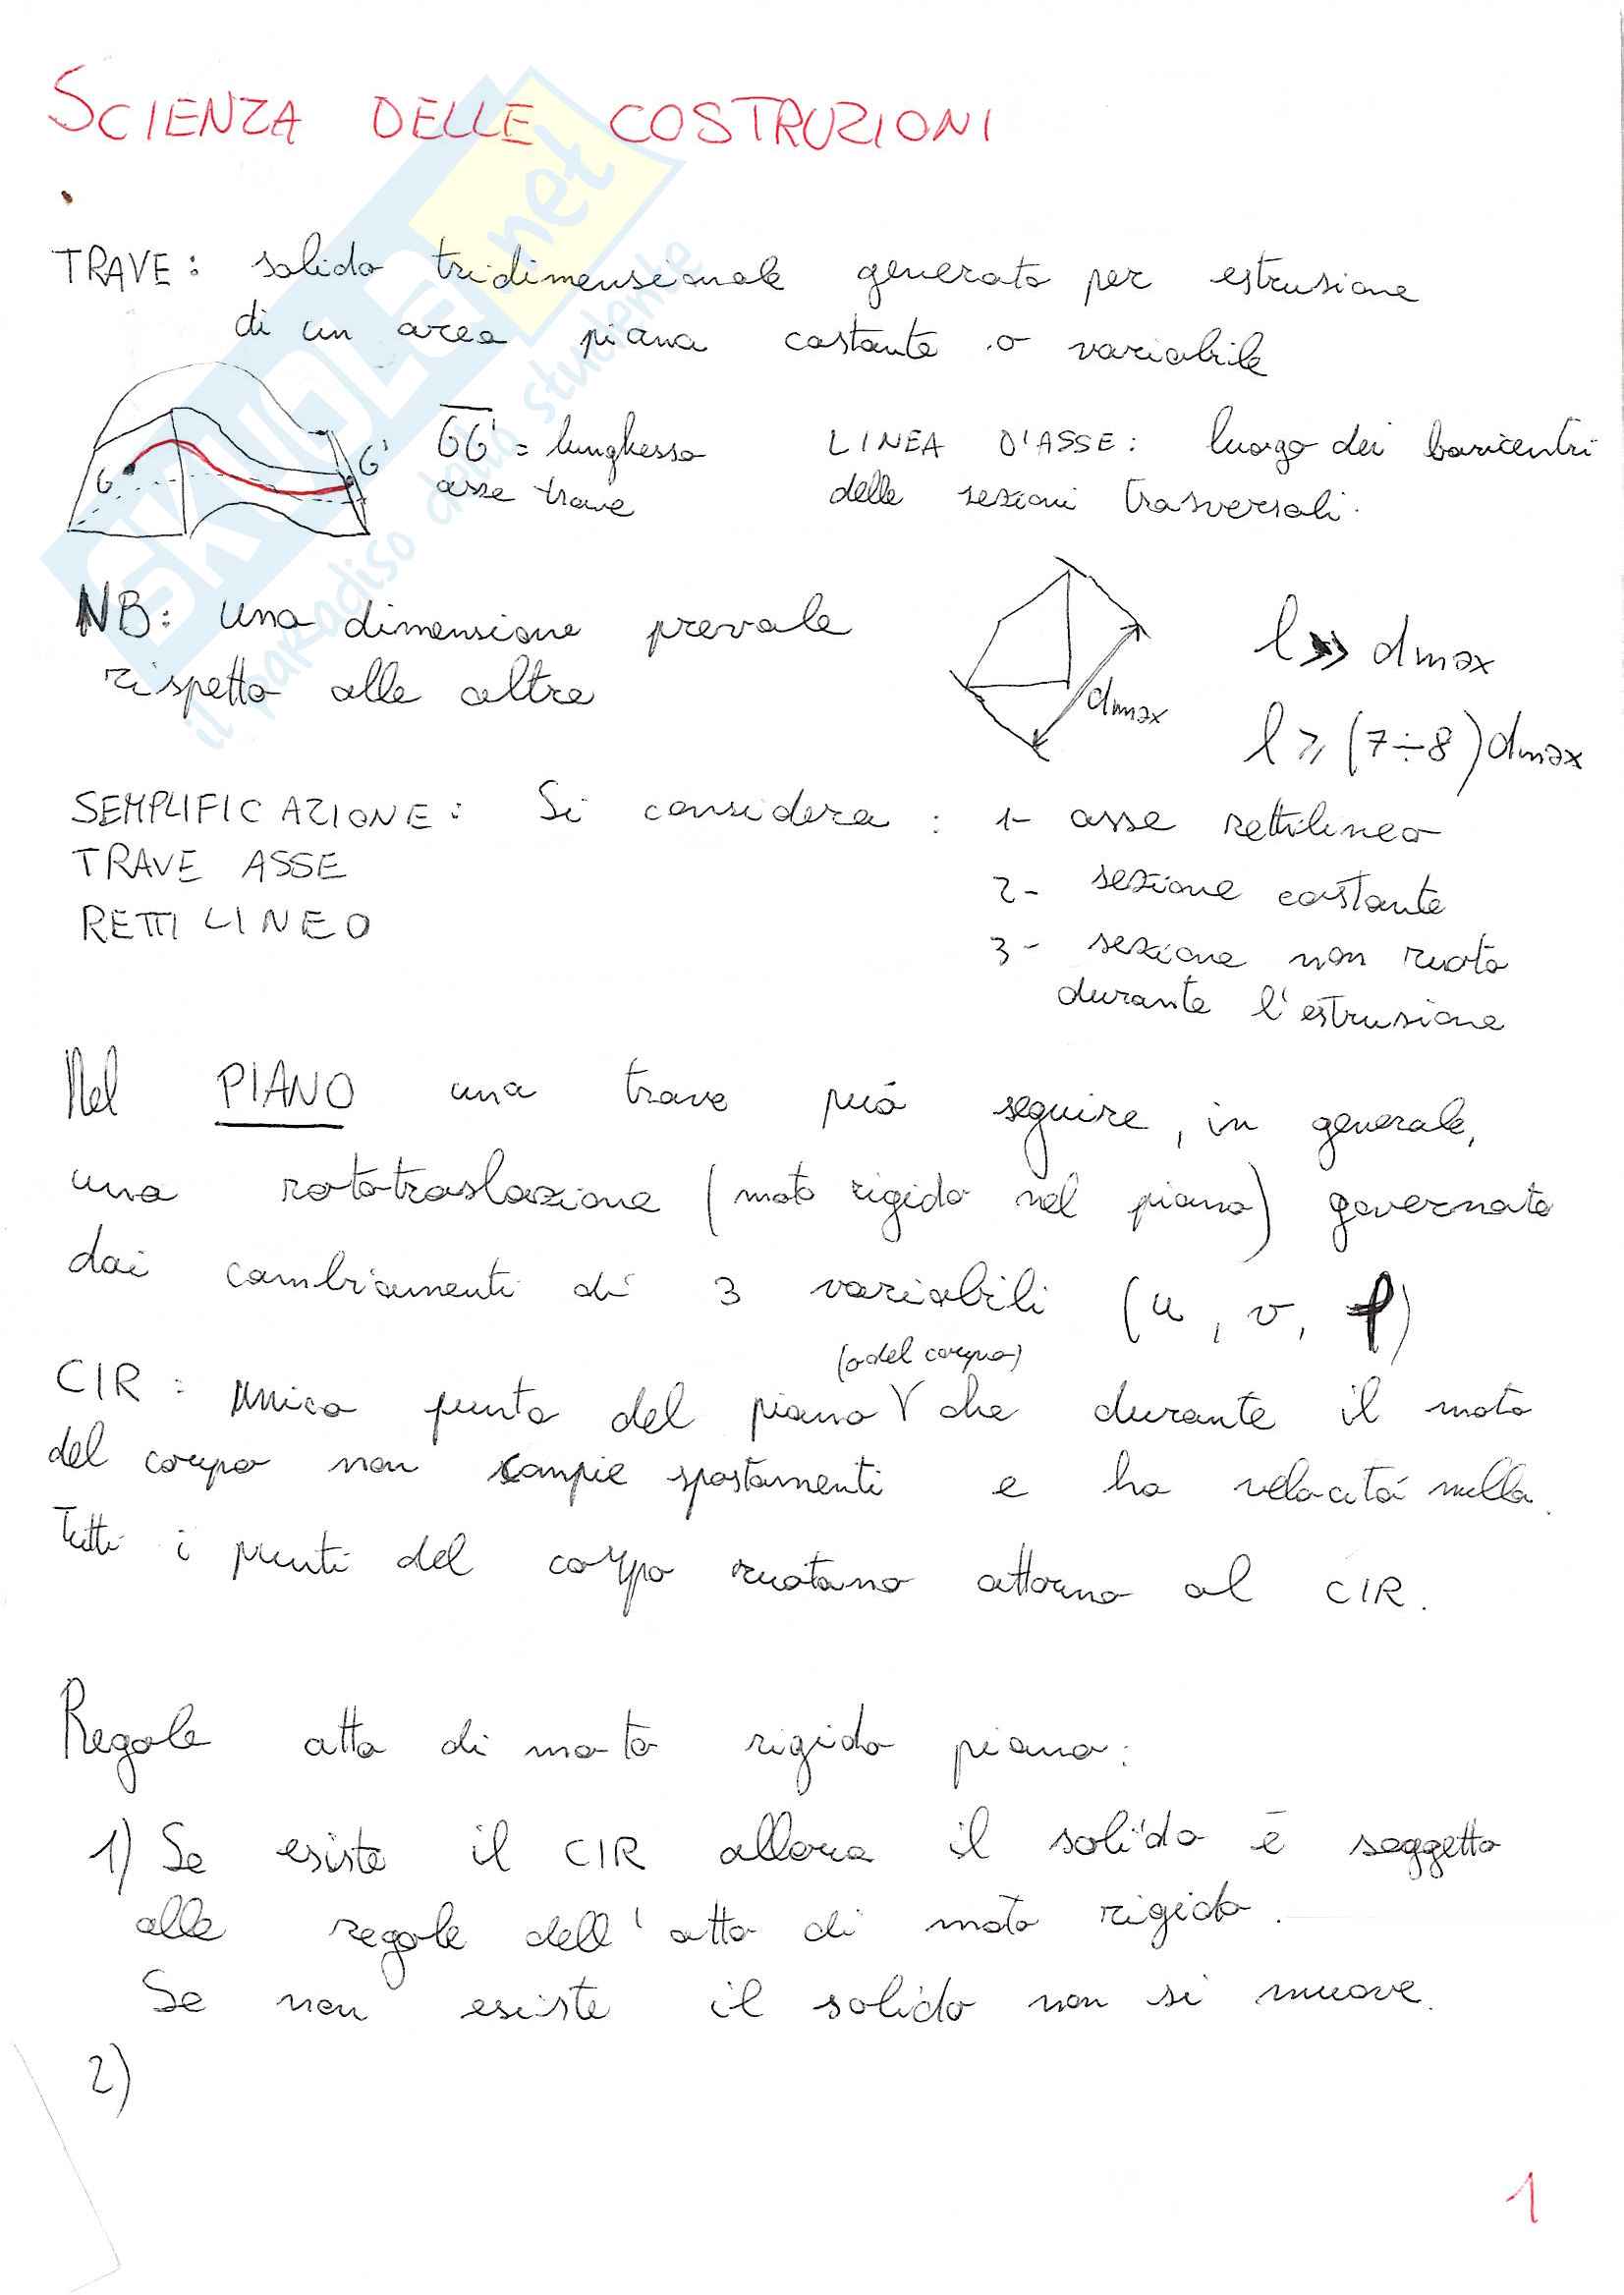 SCIENZA DELLE COSTRUZIONI
TRAVE: solido tridimensionale generato per estrusione
di un area piana costante o variabile
G G'
GG' = lunghezza
asse trave
LINEA D'ASSE: luogo dei baricentri
delle sezioni trasversali.
NB: una dimensione prevale
rispetto alle altre
dmax
l >> dmax
l ≥ (7÷8) dmax
SEMPLIFICAZIONE: Si considera: 1- asse rettilineo
TRAVE ASSE
RETTILINEO
2- sezione costante
3- sezione non ruota
durante l'estrusione
Nel PIANO una trave può seguire, in generale,
una rototraslazione (moto rigido nel piano) governata
dai cambiamenti di 3 variabili (u, v, φ)
(o del corpo)
CIR: unico punto del piano che durante il moto
del corpo non compie spostamenti e ha velocità nulla.
Tutti i punti del corpo ruotano attorno al CIR.
Regole atto di moto rigido piano:
1) Se esiste il CIR allora il solido è soggetto
alle regole dell'atto di moto rigido.
Se non esiste il solido non si muove.
2)
1
SKUOLA.net
il paradiso dello studente